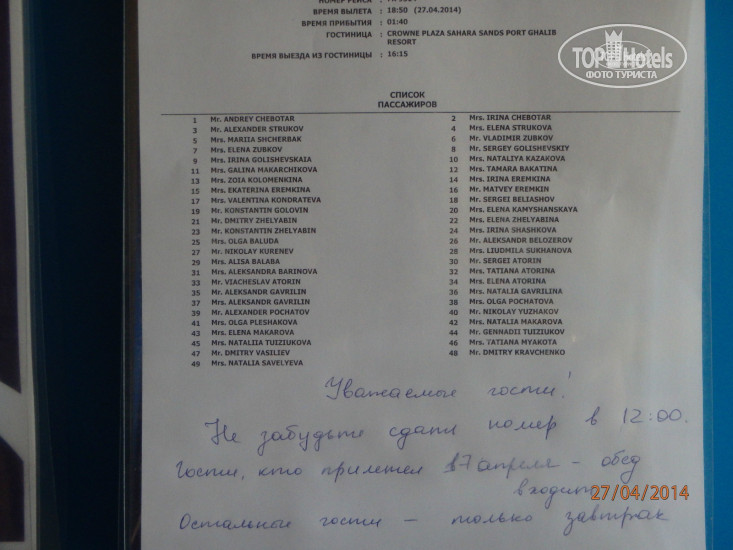 НОМЕР РЕЙСА :
ВРЕМЯ ВЫЛЕТА : 18:50 (27.04.2014)
ВРЕМЯ ПРИБЫТИЯ : 01:40
ГОСТИНИЦА : CROWNE PLAZA SAHARA SANDS PORT GHALIB
RESORT
ВРЕМЯ ВЫЕЗДА ИЗ ГОСТИНИЦЫ : 16:15
TOPHotels
ФОТО ТУРИСТА
СПИСОК
ПАССАЖИРОВ
1 Mr. ANDREY CHEBOTAR 2 Mrs. IRINA CHEBOTAR
3 Mr. ALEXANDER STRUKOV 4 Mrs. ELENA STRUKOVA
5 Mrs. MARIIA SHCHERBAK 6 Mr. VLADIMIR ZUBKOV
7 Mrs. ELENA ZUBKOV 8 Mr. SERGEY GOLISHEVSKIY
9 Mrs. IRINA GOLISHEVSKAIA 10 Mrs. NATALIYA KAZAKOVA
11 Mrs. GALINA MAKARCHIKOVA 12 Mrs. TAMARA BAKATINA
13 Mrs. ZOIA KOLOMENKINA 14 Mrs. IRINA EREMKINA
15 Mrs. EKATERINA EREMKINA 16 Mr. MATVEY EREMKIN
17 Mrs. VALENTINA KONDRATEVA 18 Mr. SERGEI BELIASHOV
19 Mr. KONSTANTIN GOLOVIN 20 Mrs. ELENA KAMYSHANSKAYA
21 Mr. DMITRY ZHELYABIN 22 Mrs. ELENA ZHELYABINA
23 Mr. KONSTANTIN ZHELYABIN 24 Mrs. IRINA SHASHKOVA
25 Mrs. OLGA BALUDA 26 Mr. ALEKSANDR BELOZEROV
27 Mr. NIKOLAY KURENEV 28 Mrs. LIUDMILA SUKHANOVA
29 Mrs. ALISA BALABA 30 Mr. SERGEI ATORIN
31 Mrs. ALEKSANDRA BARINOVA 32 Mrs. TATIANA ATORINA
33 Mr. VIACHESLAV ATORIN 34 Mrs. ELENA ATORINA
35 Mr. ALEKSANDR GAVRILIN 36 Mrs. NATALIA GAVRILINA
37 Mr. ALEKSANDR GAVRILIN 38 Mrs. OLGA POCHATOVA
39 Mr. ALEXANDER POCHATOV 40 Mr. NIKOLAY YUZHAKOV
41 Mrs. OLGA PLESHAKOVA 42 Mrs. NATALIA MAKAROVA
43 Mrs. ELENA MAKAROVA 44 Mr. GENNADII TUIZIUKOV
45 Mrs. NATALIIA TUIZIUKOVA 46 Mrs. TATIANA MYAKOTA
47 Mr. DMITRY VASILIEV 48 Mr. DMITRY KRAVCHENKO
49 Mrs. NATALIA SAVELYEVA
Уважаемые гости!
Не забудьте сдать номер в 12:00.
Гости, кто прилетел 17 апреля – обед
входит
27/04/2014
Остальные гости – только завтрак